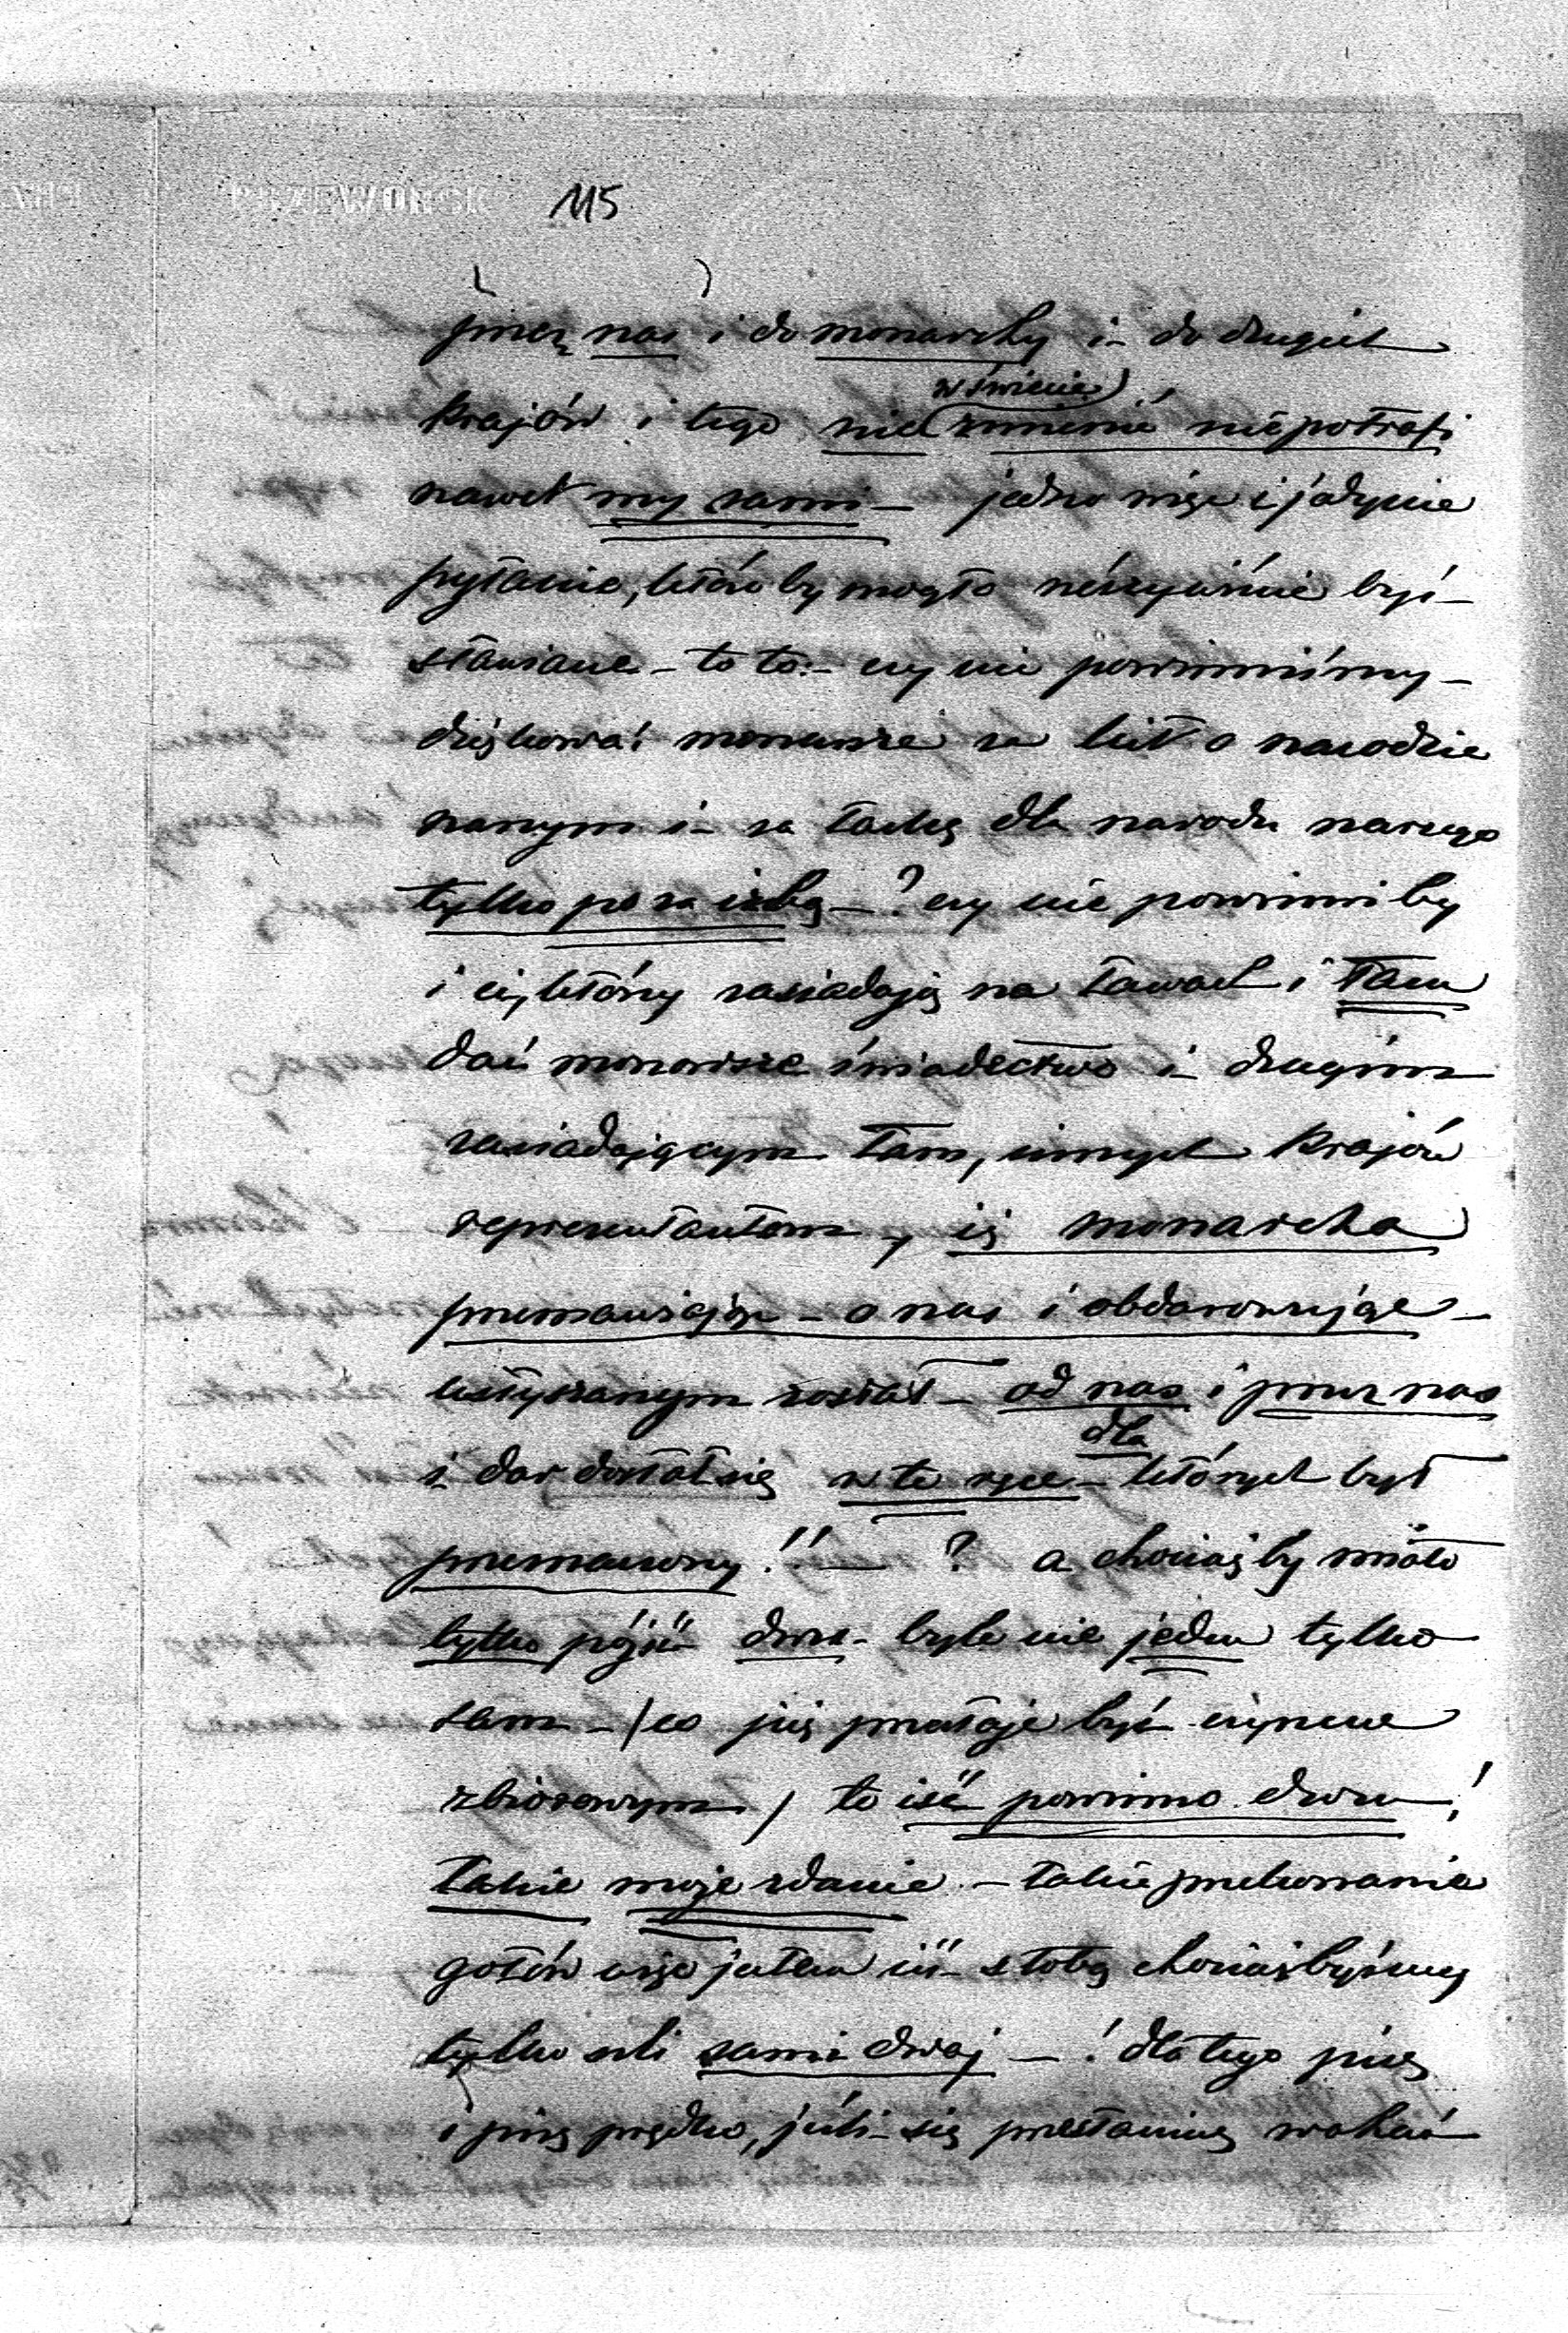 PRZEWORSK
115
przez nas i do monarchy i do drugich
krajów i tego nic w świecie zmienić nie potrafi
nawet my sami — jedno więc i jedynie
pytanie, któro by mogło rzeczywiście być —
stawiane — to to: — czy nie powinniśmy —
dziękować monarsze za list o narodzie
naszym i — za łaskę dla narodu naszego
tylko po za izbą — ? czy nie powinni by
i ci, którzy zasiadają na ławach i tam
dać monarsze świadectwo i — drugim
zasiadającym tam, innych krajów
reprezentantom, iż monarcha
przemawiając — o nas i obdarowując —
usłyszanym został — od nas i przez nas
i dar dostał się w te ręce — dla których był
przeznaczony !! — ? a chociażby miało
tylko pójść dwu — byle nie jeden tylko
sam — / co już przestaje być czynem
zbiorowym / to iść powinno dwu !
takie moje zdanie — takie przekonanie
gotów więc jestem iść z tobą chociażbyśmy
tylko szli sami dwaj — ! dla tego piszę
i piszę prędko, jeśli się przestaniesz wahać